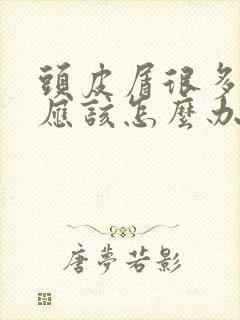 頭皮屑很多
應該怎麼办
唐夢若影